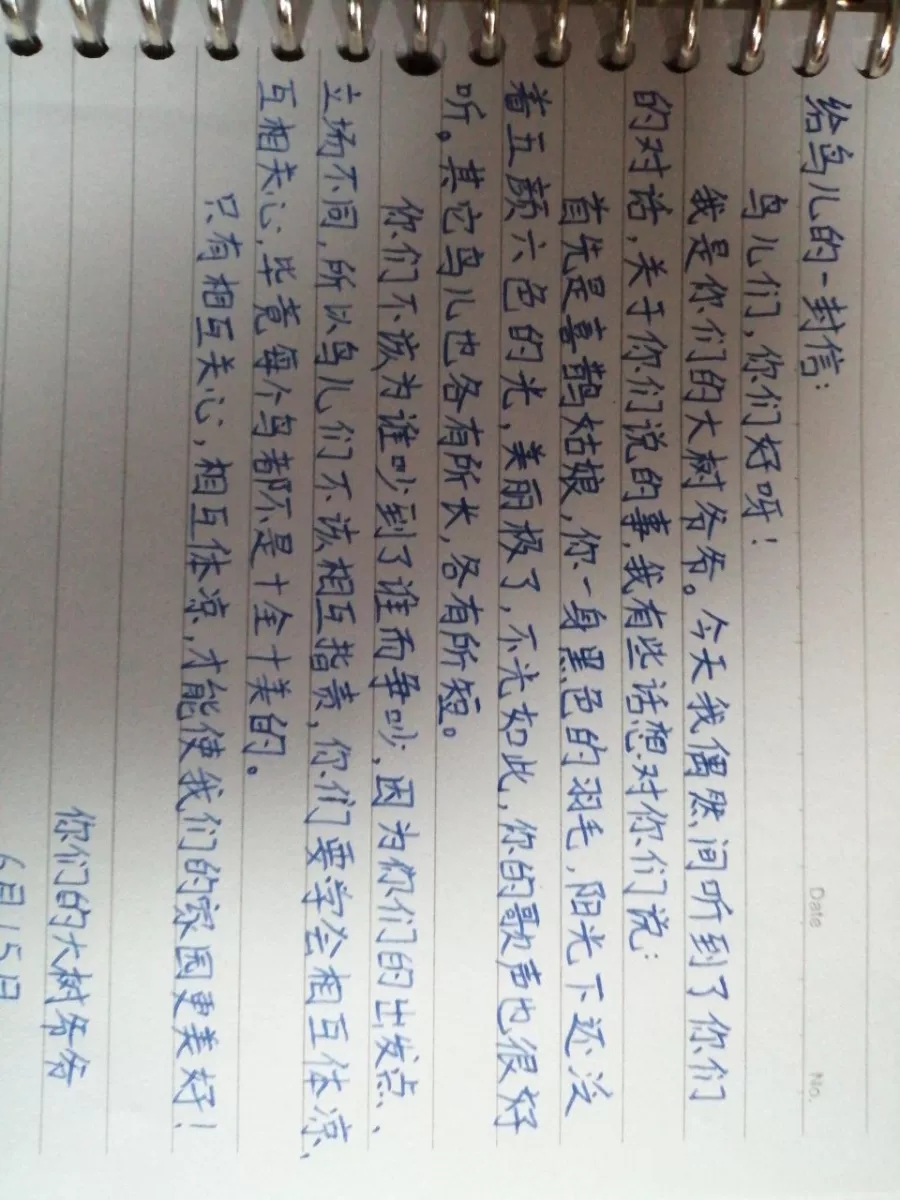 Date
No.
给鸟儿的一封信：
鸟儿们，你们好呀！
我是你们的大树爷爷。今天我偶然间听到了你们
的对话，关于你们说的事，我有些话想对你们说：
首先是喜鹊姑娘，你一身黑色的羽毛，阳光下还泛
着五颜六色的光，美丽极了，不光如此，你的歌声也很好
听。其它鸟儿也各有所长，各有所短。
你们不该为谁吵到了谁而争吵，因为你们的出发点、
立场不同，所以鸟儿们不该相互指责，你们要学会相互体凉、
互相关心，毕竟每个鸟都不是十全十美的。
只有相互关心，相互体凉，才能使我们的家园更美好！
你们的大树爷爷
6月15日